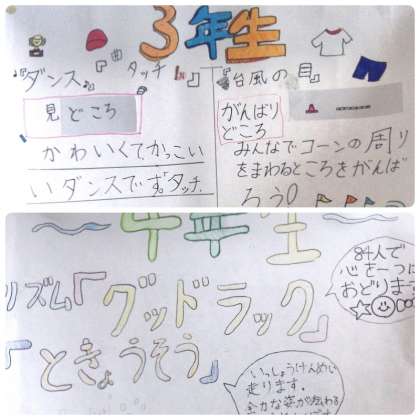 3年生
『ダンス』
『曲 タッチ』
見どころ
かわいくて、かっこい
いダンスです。タッチ
『台風の目』
がんばり
どころ
みんなでコーンの周り
をまわるところをがんば
ろう。
4年生
リズム『グッドラック』
84人で
心を一つに
おどります
『ときょうそう』
いっしょうけんめい
走ります。